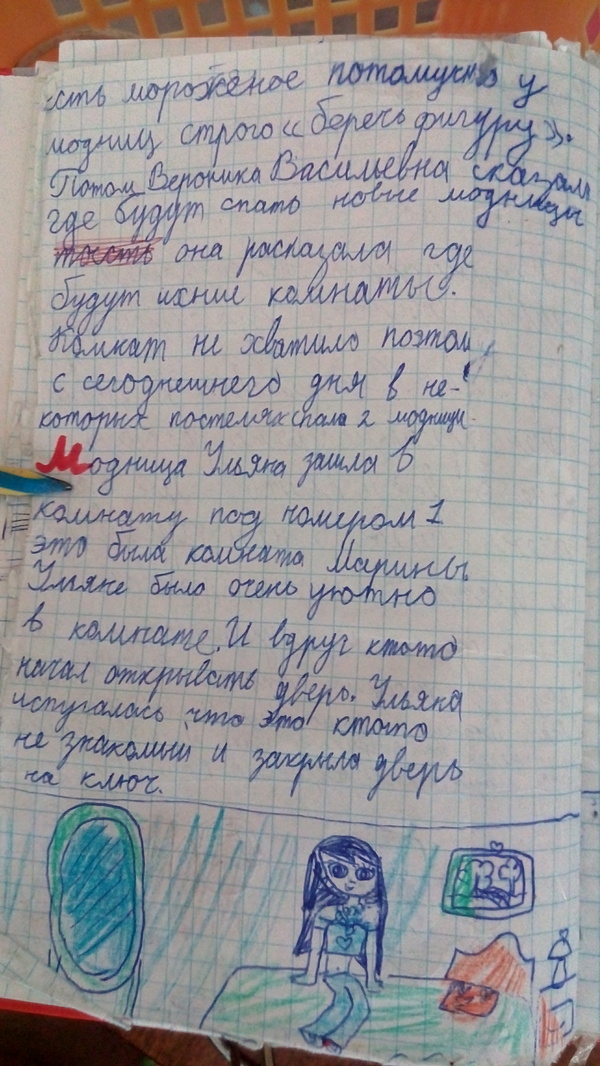 есть мороженое потомучто у
модниц строго "беречь фигуру".
Потом Вероника Васильевна сказала
где будут спать новые модницы
она расказала где
будут ихние комнаты.
Комнат не хватило поэтом
с сегоднешнего дня в не-
которых постелях спала 2 модницы.
Модница Ульяна зашла в
комнату под номером 1
это была комната Марины
Ульяне было очень уютно
в комнате. И вдруг ктото
начал открывать дверь. Ульяна
испугалась что это ктото
не знакомый и закрыла дверь
на ключ.